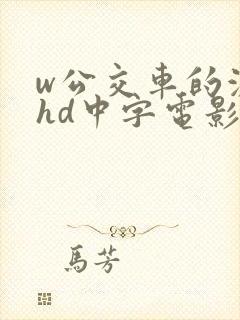 w公交車的
hd中字電影
馬芳